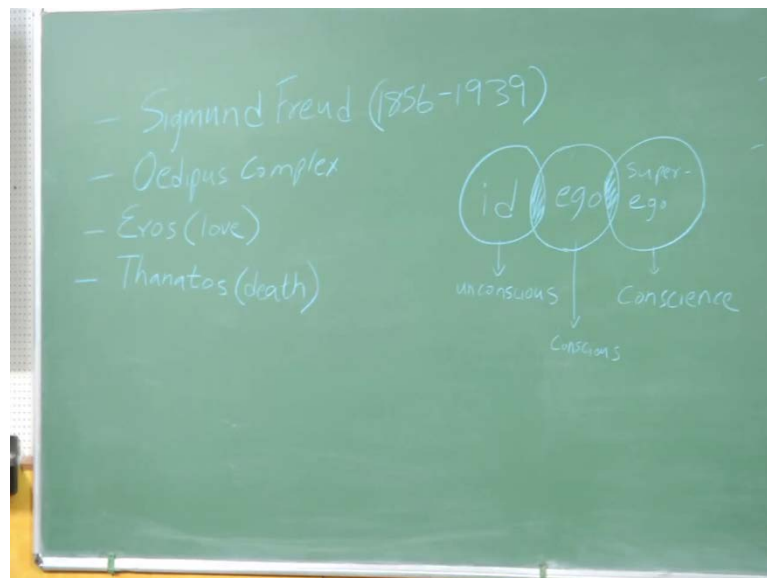 - Sigmund Freud (1856-1939)
- Oedipus Complex
- Eros (love)
- Thanatos (death)
id
ego
super-
ego
unconscious
Conscience
Conscious